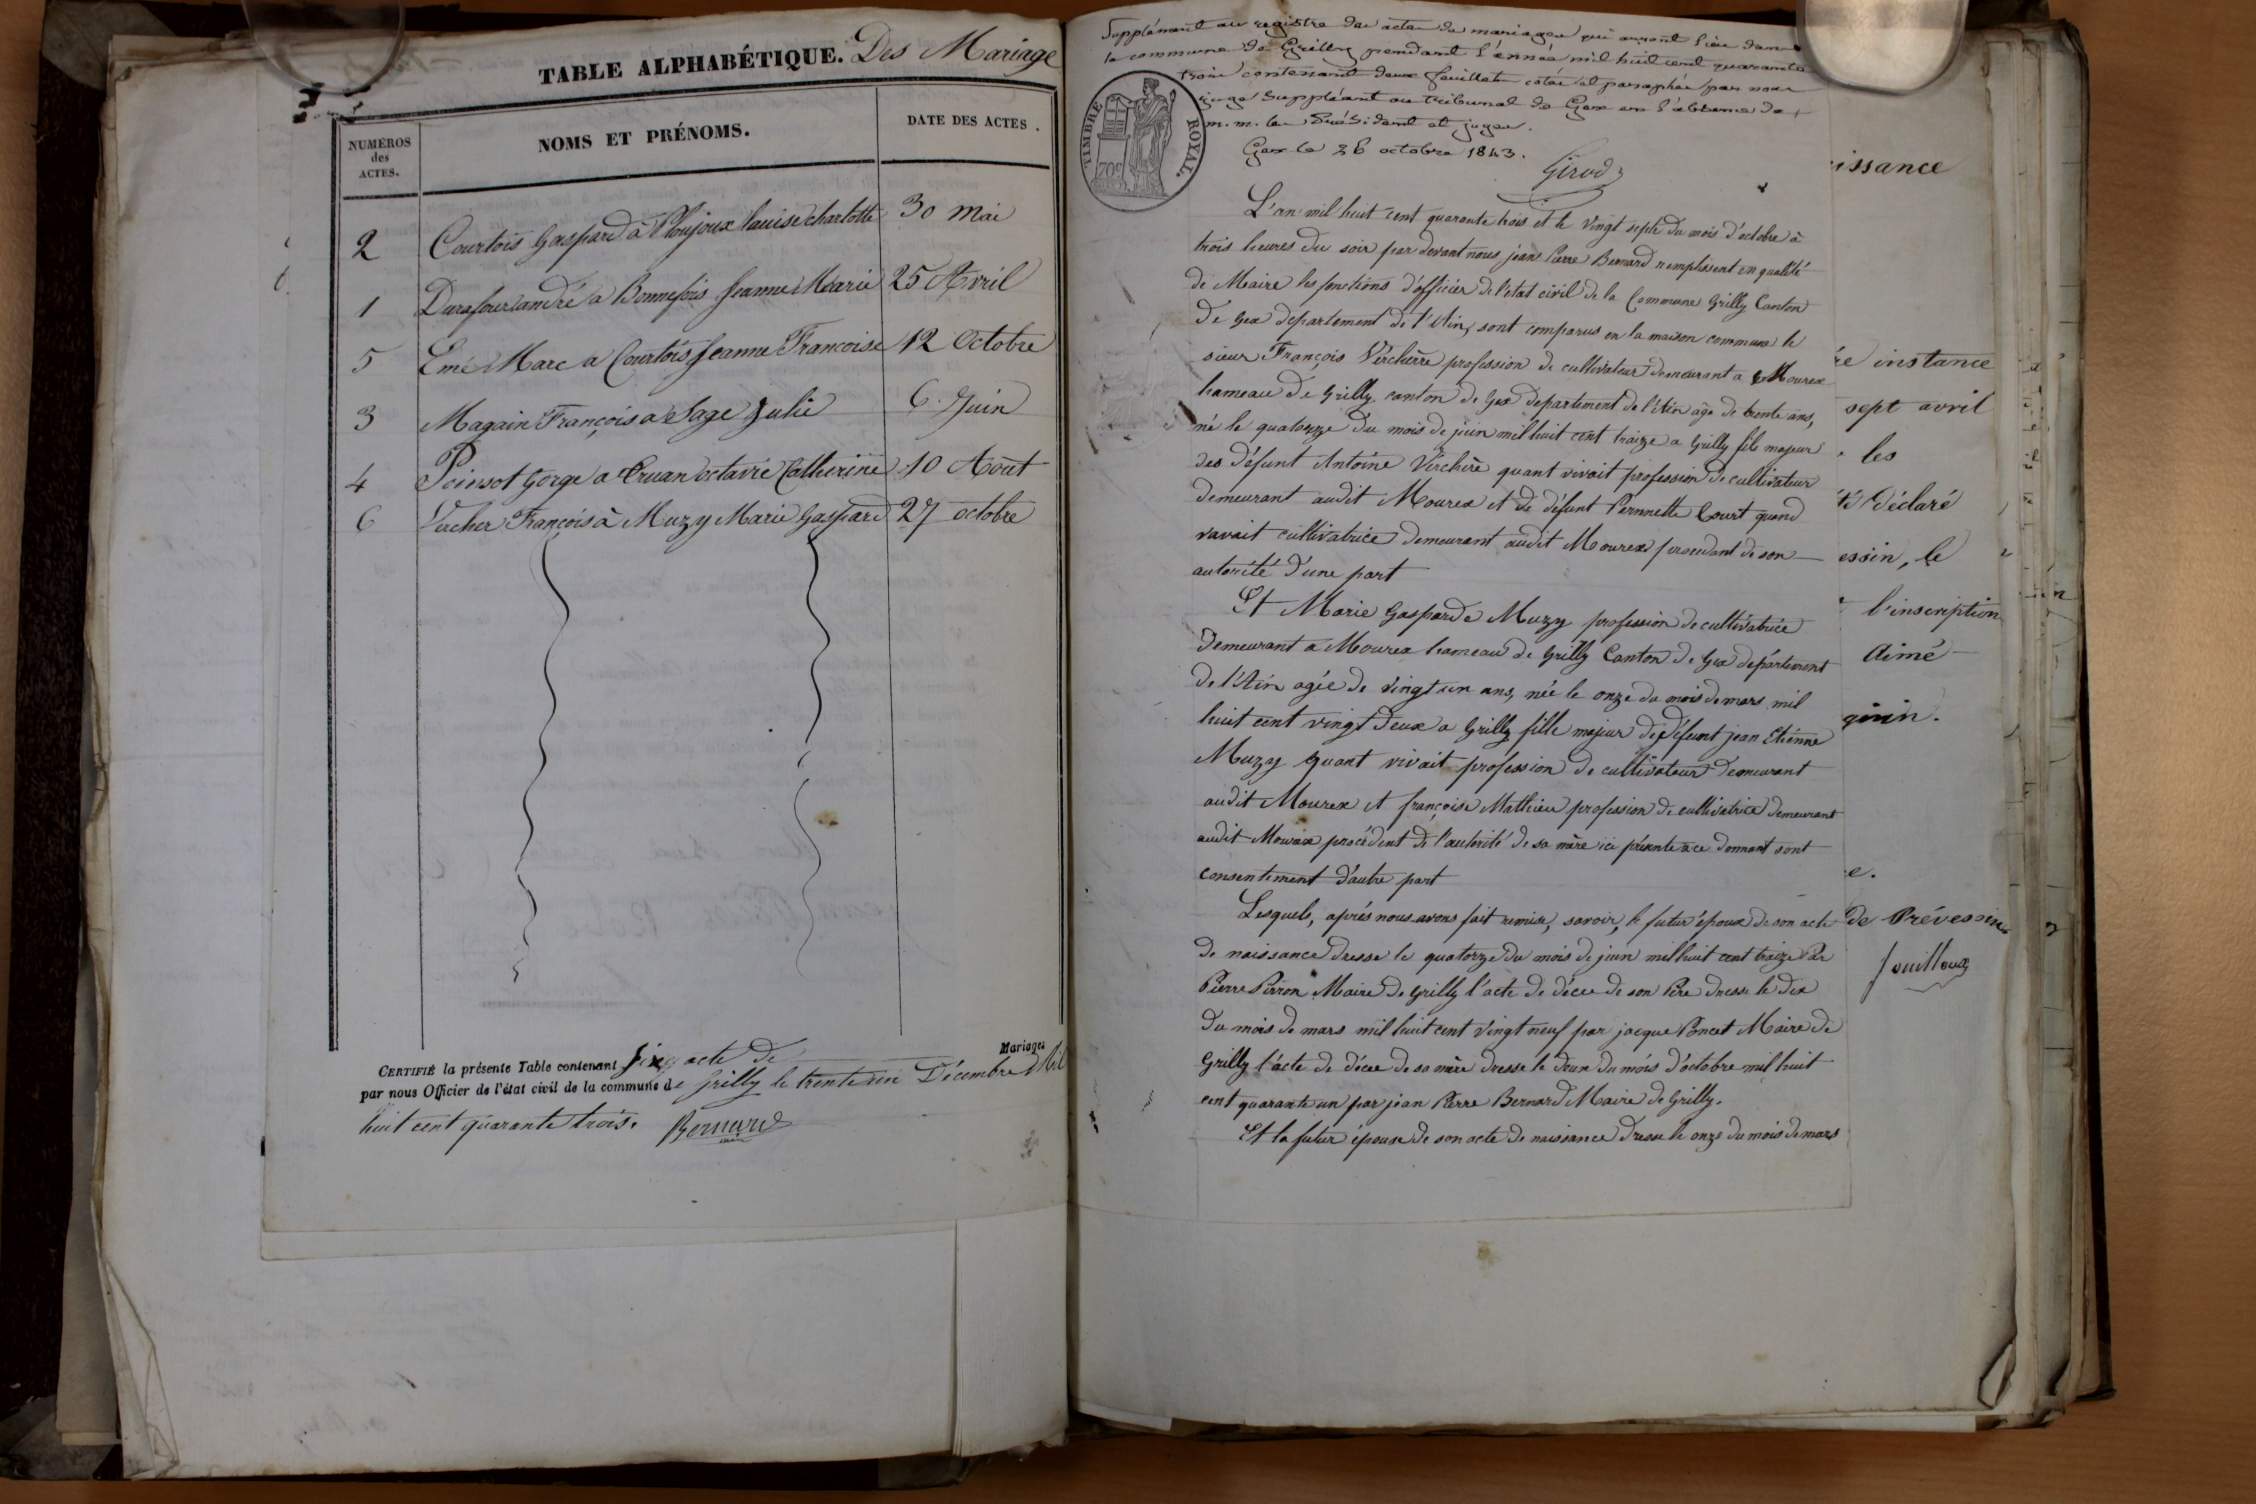 TABLE ALPHABÉTIQUE. Des Mariage
NUMÉROS des ACTES.
NOMS ET PRÉNOMS.
DATE DES ACTES.
2 Courtois Gaspard à Ploujoux louise charlotte 30 mai
1 Durafour andré a Bonnefois Jeanne Marie 25 Avril
5 Emé Marc a Courtois Jeanne Francoise 12 Octobre
3 Magain François a Sage Julie 6 Juin
4 Poinsot Gorge a Cruan octavie Catherine 10 Aout
6 Vircher François à Muzy Marie Gaspard 27 octobre
CERTIFIÉ la présente Table contenant six acte de Mariages
par nous Officier de l'état civil de la commune de Grilly le trente un Décembre Mil
huit cent quarante trois. Bernard
Supplément au registre des actes de mariages qui auront lieu dans
la commune de Grilly pendant l'année mil huit cent quarante
trois contenant deux feuillets cotés et paraphés par nous
juge suppléant au tribunal de Gex en l'absence de
m.m. les Président et juges.
Gex le 26 octobre 1843.
Girod
TIMBRE ROYAL.
L'an mil huit cent quarante trois et le vingt sept du mois d'octobre à
trois heures du soir par devant nous jean Pierre Bernard remplissent en qualité
de Maire les fonctions d'officier de l'etat civil de la Commune Grilly Canton
de Gex departement de l'Ain, sont comparus en la maison commune le
sieur François Verchère profession de cultivateur demeurant a Mourex
hameau de Grilly canton de Gex departement de l'Ain âgé de trente ans,
né le quatorze du mois de juin mil huit cent traize a Grilly fils majeur
des défunt Antoine Virchère quant vivait profession de cultivateur
demeurant audit Mourex et de défunt Pernnette Court quand
vavait cultivatrice demeurant audit Mourex procedant de son
autorité d'une part
Et Marie Gasparde Muzy profession de cultivatrice
demeurant a Mourex hameau de Grilly Canton de Gex département
de l'Ain agée de vingt un ans, née le onze du mois de mars mil
huit cent vingt deux a Grilly fille majeur de défunt jean Etiénne
Muzy quant vivait profession de cultivateur demeurant
audit Mourex et françoise Mathieu profession de cultivatrice demeurant
audit Mourex procédent de l'autorité de sa mère ici présente a ce donnant sont
consentement d'autre part
Lesquels, aprés nous avons fait remise, savoir, le futur époux de son acte
de naissance dresse le quatorze du mois de juin mil huit cent traize Par
Pierre Perron Maire de Grilly l'acte de décée de son Père dresse le dix
du mois de mars mil huit cent vingt neuf par jacque Poncet Maire de
Grilly l'acte de décee de sa mère dresse le deux du mois d'octobre mil huit
cent quarante un par jean Pierre Bernard Maire de Grilly.
Et la futur épouse de son acte de naissance dresse le onze du mois de mars
issance
re instance
sept avril
les
déclaré
essin, le
l'inscription
Aimé
de Prévessin
Jouilloux